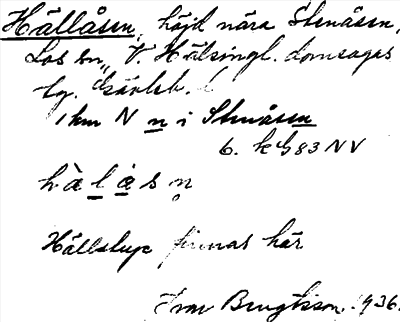 Hällåsen, höjd nära Stenåsen,
Los sn, V. Hälsingl. domsagas
tg. Gävleb. l
1 km N n i Stenåsen
6. k G 83 NV
hàlåsn
Hällstup finnas här
Ivar Bengtsson. 1936.